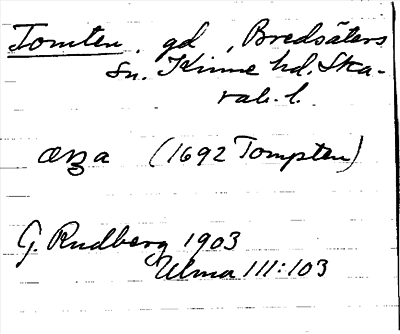 Tomten, gd, Bredsäters
sn. Kinne hd. Ska-
rab. l.
(1692 Tompten)
G. Rudberg 1903
Ulma 111:103